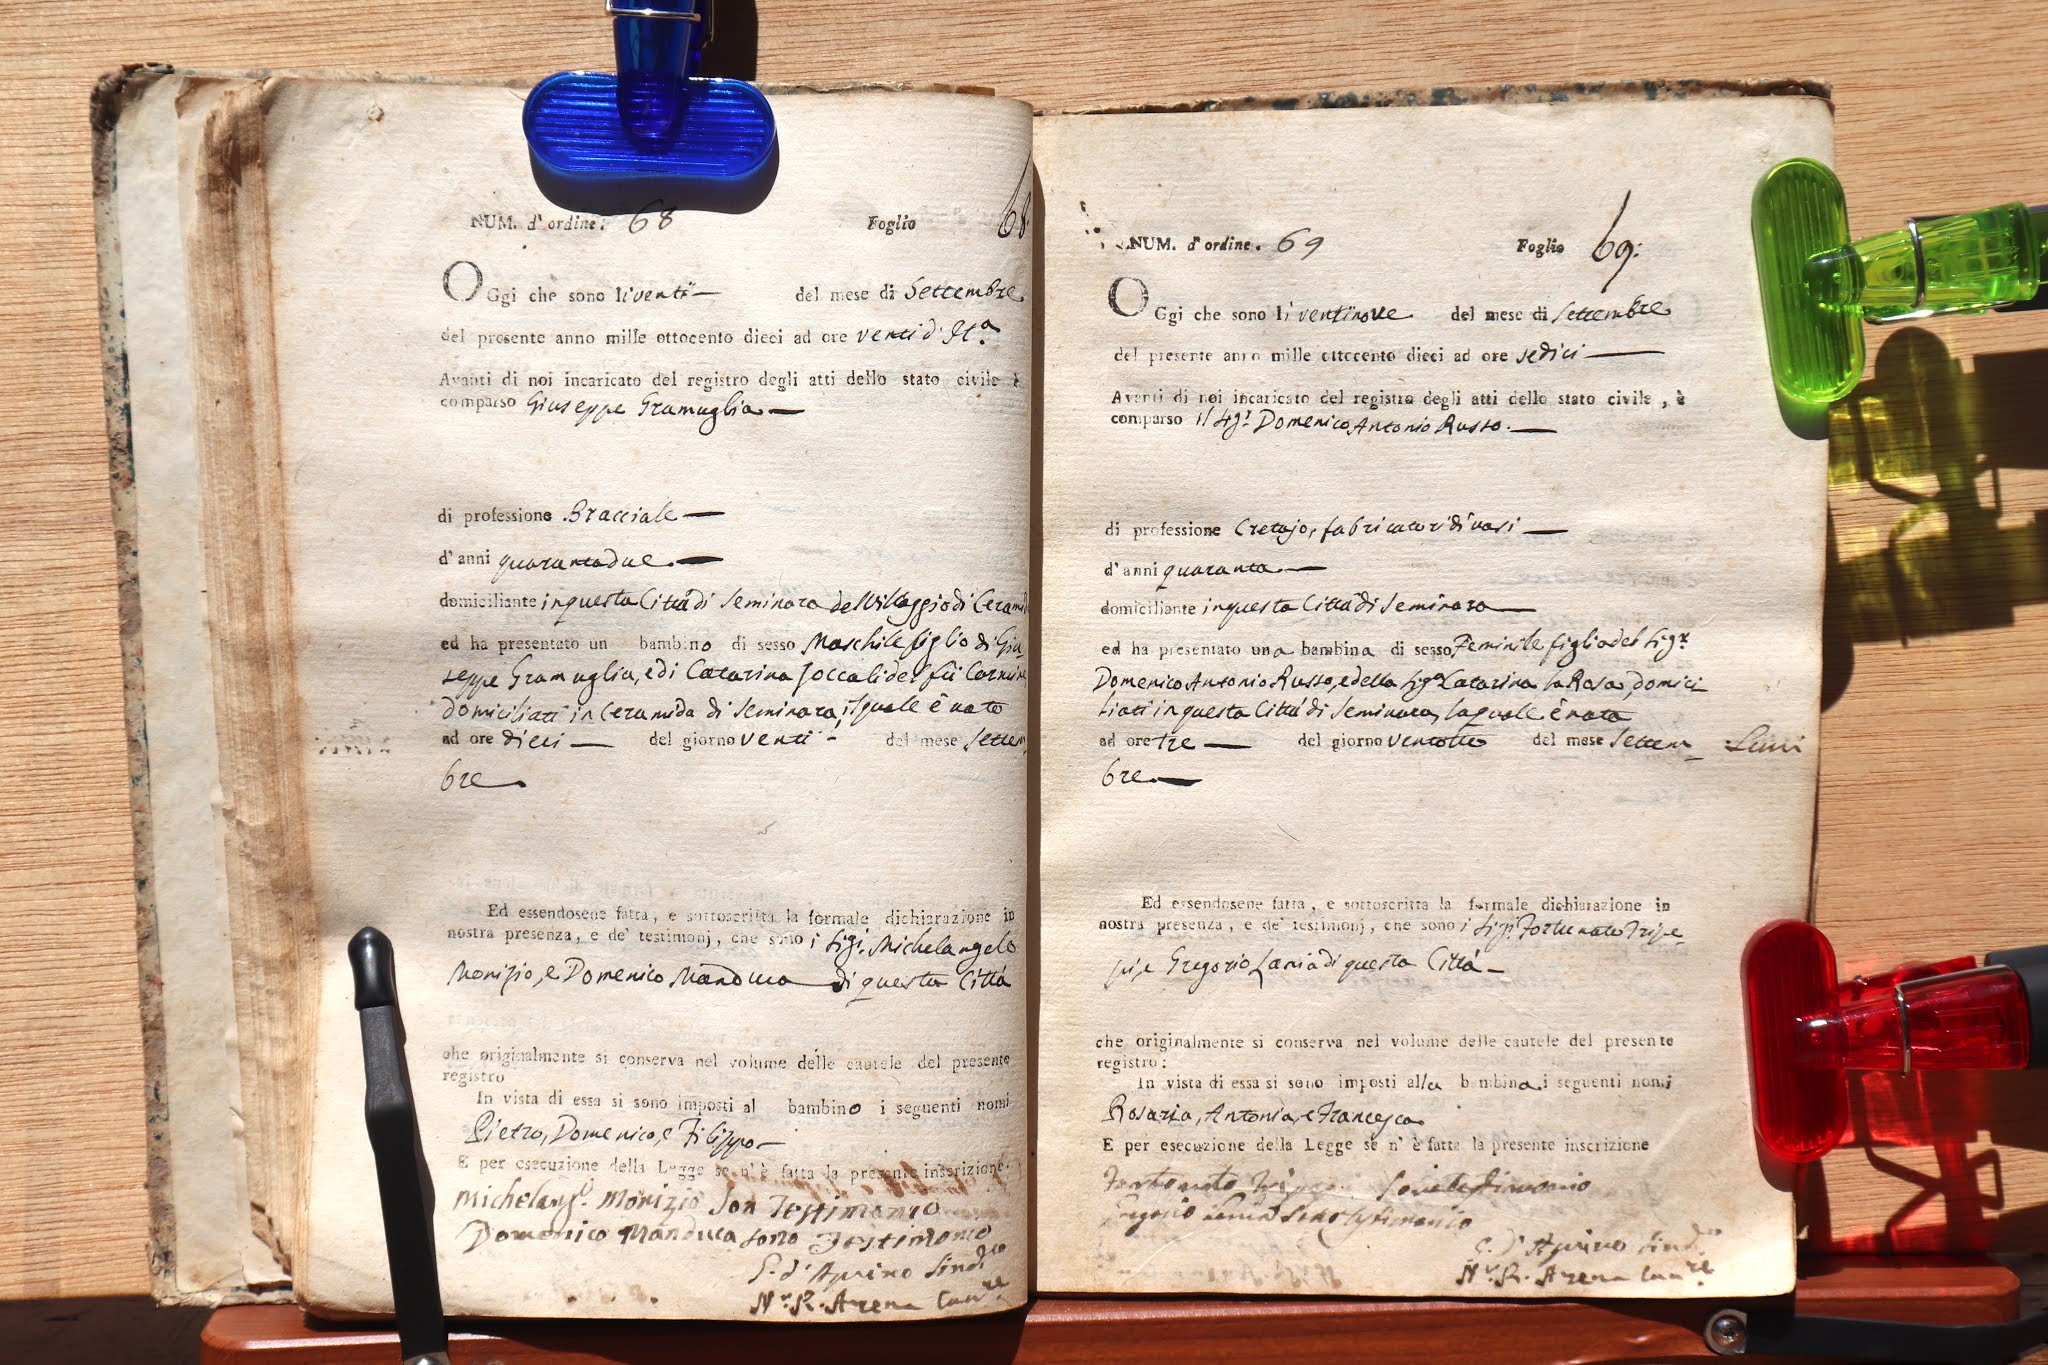 NUM. d' ordine. 68 Foglio 68
OGgi che sono li venti del mese di Settembre
del presente anno mille ottocento dieci ad ore venti d' It.a
Avanti di noi incaricato del registro degli atti dello stato civile è
comparso Giuseppe Gramuglia
di professione Bracciale
d' anni quarantadue
domiciliante in questa Città di Seminara del Villaggio di Ceramida
ed ha presentato un bambino di sesso Maschile figlio di Giu
seppe Gramuglia, e di Catarina Zoccali del fù Carmine
domiciliati in Ceramida di Seminara, il quale è nato
ad ore dieci del giorno venti del mese Settem
bre
Ed essendosene fatta, e sottoscritta la formale dichiarazione in
nostra presenza, e de' testimonj, che sono i Sigi. Michelangelo
Morizio, e Domenico Manduca di questa Città
che originalmente si conserva nel volume delle cautele del presente
registro
In vista di essa si sono imposti al bambino i seguenti nomi
Pietro, Domenico, e Filippo
E per esecuzione della Legge se n' è fatta la presente inscrizione.
Michelang.o Morizio son Testimonio
Domenico Manduca sono Testimonio
d' Aprino Sind.co
N.r R. Arena Can.re
NUM. d' ordine. 69 Foglio 69.
OGgi che sono li ventinove del mese di Settembre
del presente anno mille ottocento dieci ad ore sedici
Avanti di noi incaricato del registro degli atti dello stato civile, è
comparso il Sig.r Domenico Antonio Russo
di professione Cretajo, fabricatori di vasi
d' anni quaranta
domiciliante in questa Città di Seminara
ed ha presentato una bambina di sesso Feminile figlia del Sig.r
Domenico Antonio Russo, e della Sig.a Catarina la Rosa, domici
liati in questa Città di Seminara, la quale è nata
ad ore tre del giorno ventotto del mese Settem
bre
Ed essendosene fatta, e sottoscritta la formale dichiarazione in
nostra presenza, e de' testimonj, che sono i Sigi. Fortunato Tripe
pi, e Gregorio Lania di questa Città
che originalmente si conserva nel volume delle cautele del presente
registro:
In vista di essa si sono imposti alla bambina i seguenti nomi
Rosaria, Antonia, e Francesca
E per esecuzione della Legge se n' è fatta la presente inscrizione
Fortunato sono testimonio
Gregorio Lania sono testimonio
d' Aprino Sind.co
N.r R. Arena Can.re